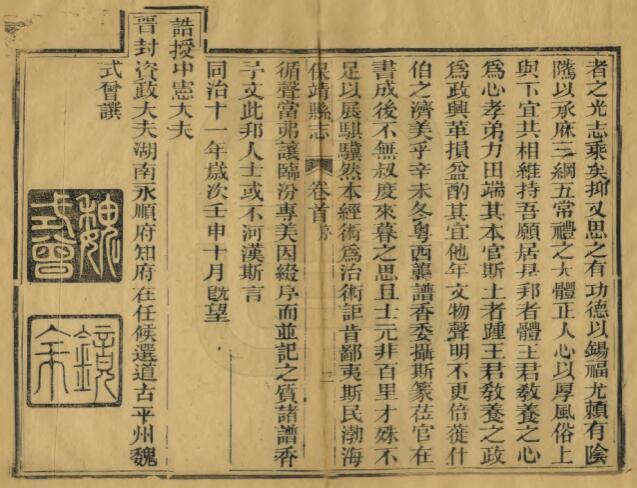 者之光志乘矣抑又思之有功德以錫福尤賴有陰
隲以承庥三綱五常禮之大體正人心以厚風俗上
與下宜共相維持吾願居是邦者體王君敎養之心
爲心孝弟力田端其本官斯土者踵王君敎養之政
爲政興革損益酌其宜他年文物聲明不更倍蓰什
伯之濟美乎辛未冬粵西龔譜香委攝斯篆莅官在
書成後不無叔度來暮之思且士元非百里才殊不
足以展騏驥然本經術爲治術詎肯鄙夷斯民渤海
保靖縣志
卷首
序
三
循聲當弗讓臨汾專美因綴序而並記之質諸譜香
子文此邦人士或不河漢斯言
同治十一年歲次壬申十月旣望
誥授中憲大夫
晉封資政大夫湖南永順府知府在任候選道古平州魏
式曾譔
魏式曾
鏡余